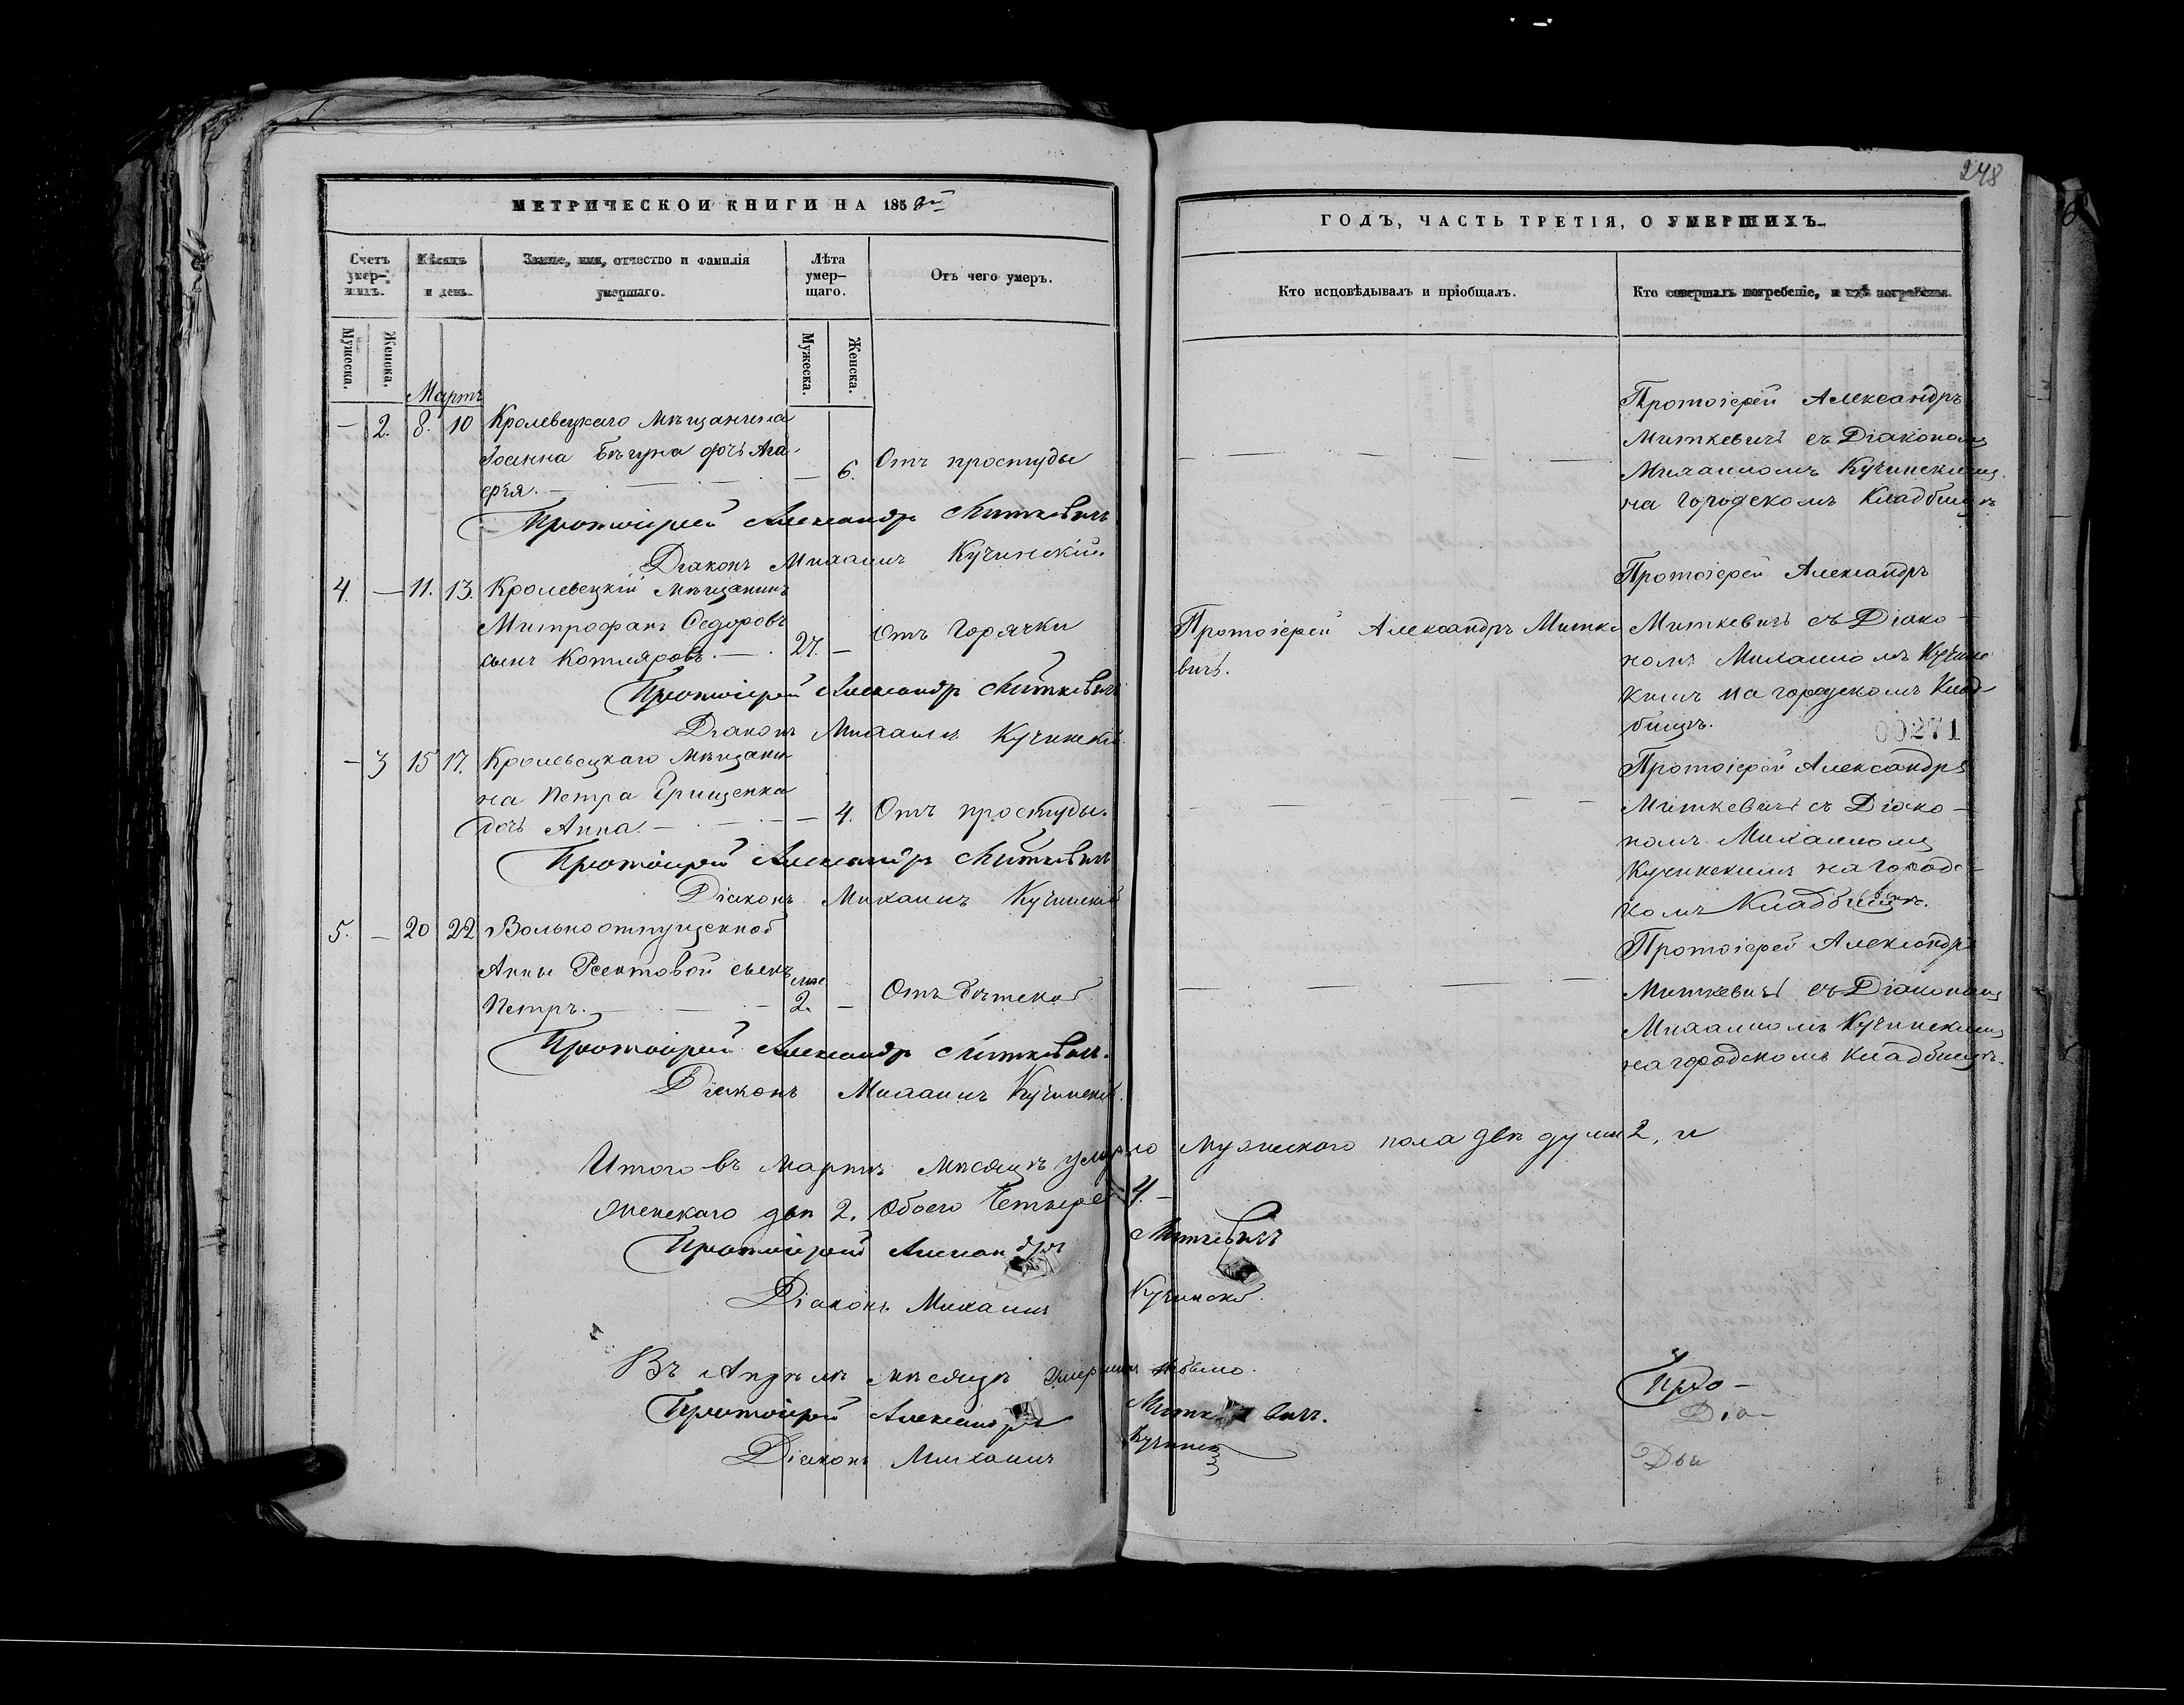 248
МЕТРИЧЕСКОЙ КНИГИ НА 185
ГОДЪ, ЧАСТЬ ТРЕТІЯ, О УМЕРШИХЪ.
Счетъ умер-шихъ.
Мѣсяцъ и день.
Званіе, имя, отчество и фамилія умершаго.
Лѣта умер-щаго.
Отъ чего умеръ.
Кто исповѣдывалъ и пріобщалъ.
Кто совершалъ погребеніе, и гдѣ погребены.
Мужеска.
Женска.
Мужеска.
Женска.
Мартъ
— 2. 8. 10 Кролевецкаго мѣщанина
Іоанна Бѣгуна дочь Ага-
фія. — — 6. Отъ простуды
Протоіерей Александръ
Миткевичъ съ Діакономъ
Михаиломъ Кучинскимъ
на городскомъ Кладбищѣ
Протоіерей Александръ Миткевичъ
Діаконъ Михаилъ Кучинскій
4. — 11. 13. Кролевецкій мѣщанинъ
Митрофанъ Федоровъ
сынъ Котляровъ. — 27. — Отъ горячки
Протоіерей Александръ Митке
вичъ.
Протоіерей Александръ
Миткевичъ съ Діако-
номъ Михаиломъ Кучинс
кимъ на городскомъ Клад-
бищѣ.
00271
Протоіерей Александръ Миткевичъ
Діаконъ Михаилъ Кучинскій.
— 3 15 17. Кролевецкаго мѣщани
на Петра Грищенка
дочь Анна. — — 4. Отъ простуды.
Протоіерей Александръ
Миткевичъ съ Діако-
номъ Михаиломъ
Кучинскимъ на городс-
комъ Кладбищѣ.
Протоіерей Александръ Миткевичъ
Діаконъ Михаилъ Кучинскій
5. — 20 22 Вольноотпущенной
Анны сынъ
Петръ. — мѣс. 2. —
Протоіерей Александръ
Миткевичъ съ Діакономъ
Михаиломъ Кучинскимъ
на городскомъ Кладбищѣ.
Протоіерей Александръ Миткевичъ.
Діаконъ Михаилъ Кучинскій.
Итого въ мартѣ мѣсяцѣ умерло мужескаго пола двѣ души 2, и
женскаго двѣ 2. обоего Четыре 4. —
Протоіерей Александръ Миткевичъ
Діаконъ Михаилъ Кучинскій.
Въ Апрѣлѣ мѣсяцѣ умершихъ небыло.
Протоіерей Александръ Миткевичъ.
Діаконъ Михаилъ Кучинск
Про-
Діа-